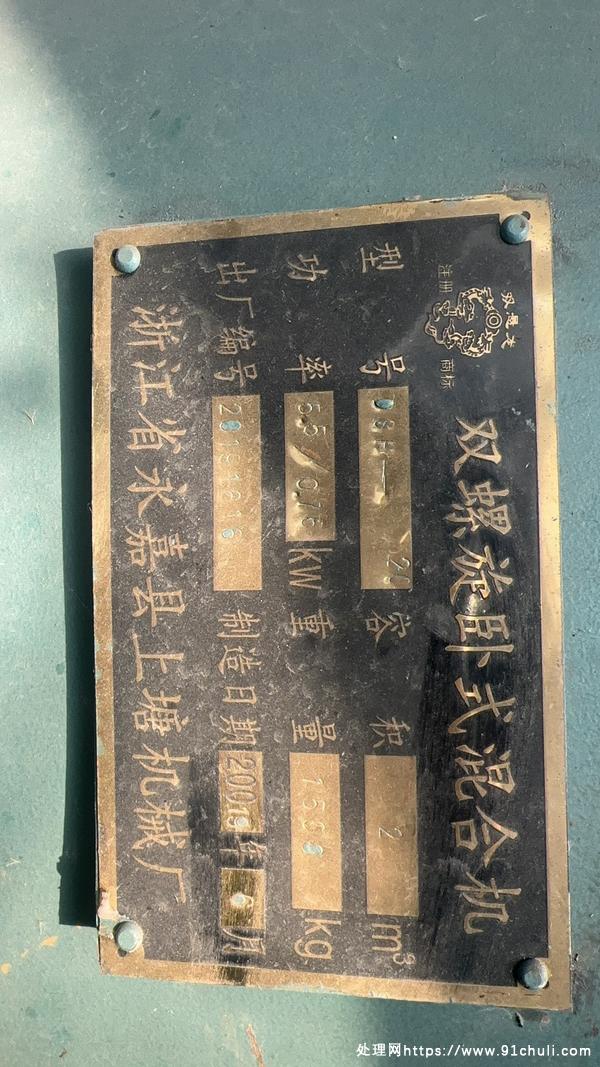 双螺旋卧式混合机
注册
商标
型 号 DSH— 20 容 积 2 m³
功 率 5.5/0.75 kW 重 量 kg
出厂编号 制造日期 年 6 月
浙江省永嘉县上塘机械厂
处理网https://www.91chuli.com